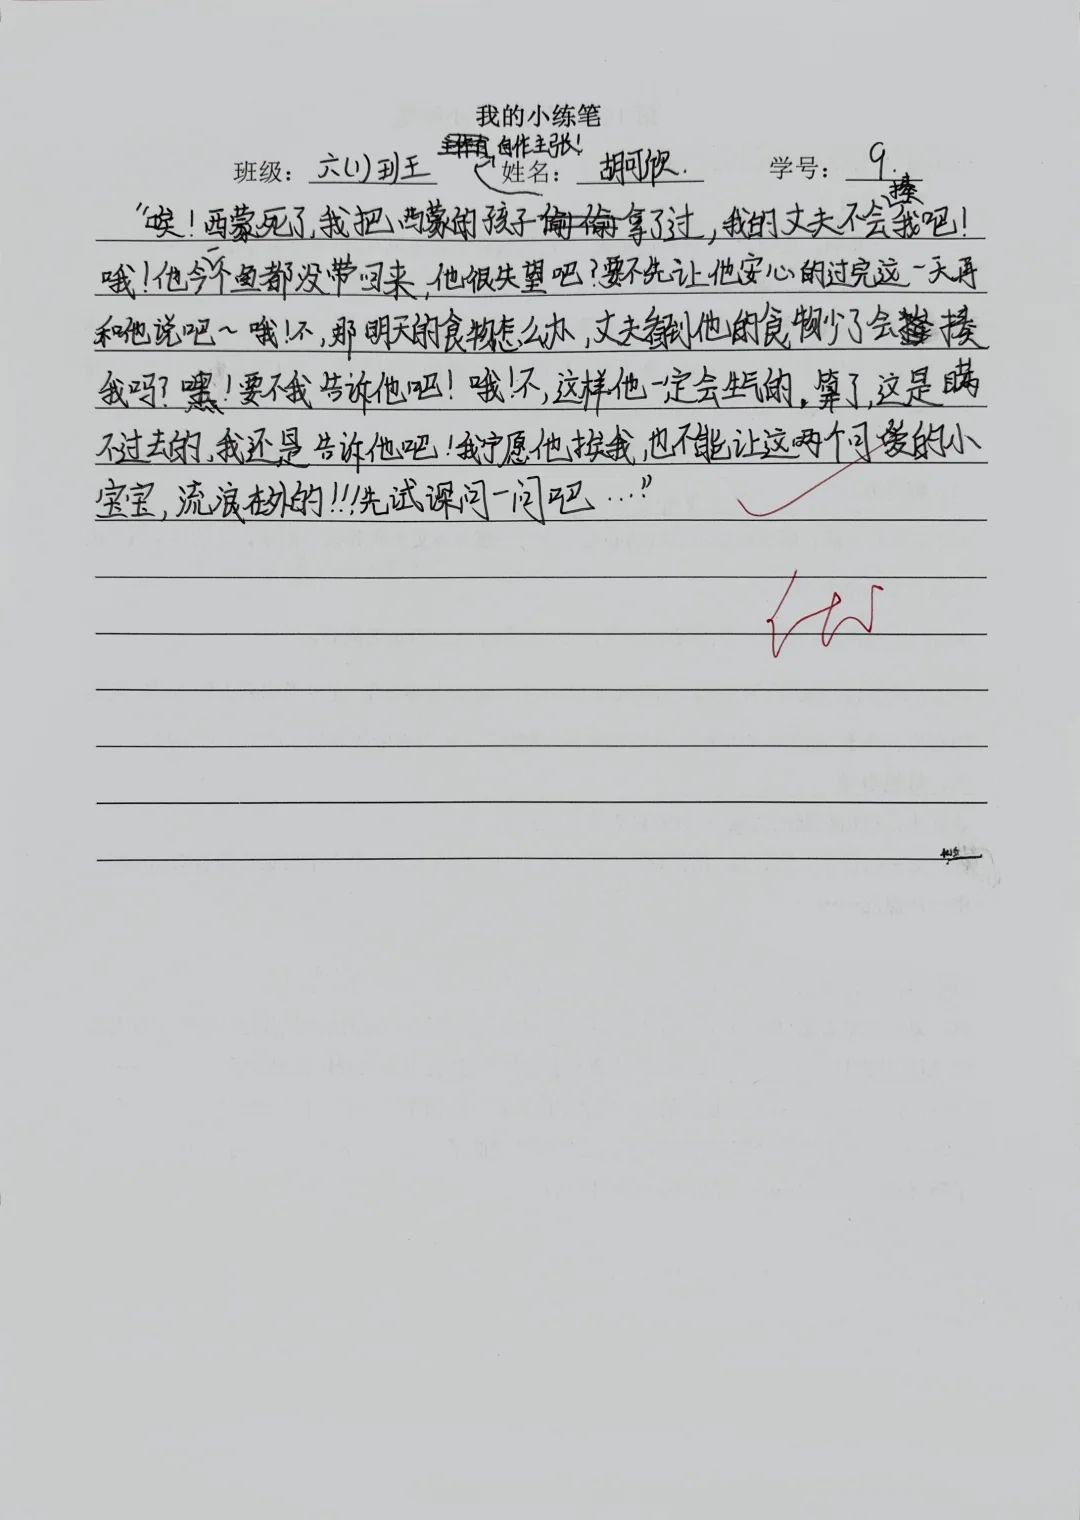 我的小练笔
自作主张！
班级：六(1)班王 姓名：胡可欣. 学号：9.
揍
“唉！西蒙死了，我把西蒙的孩子拿了过，我的丈夫不会我吧！
哦！他今一个鱼都没带回来，他很失望吧？要不先让他安心的过完这一天再
和他说吧～哦！不，那明天的食物怎么办，丈夫看到他的食物少了会揍
我吗？嘿！要不我告诉他吧！哦！不，这样他一定会生气的。算了，这是瞒
不过去的，我还是告诉他吧！我宁愿他挨我，也不能让这两个可爱的小
宝宝，流浪在外的！！！先试探问一问吧…”
优